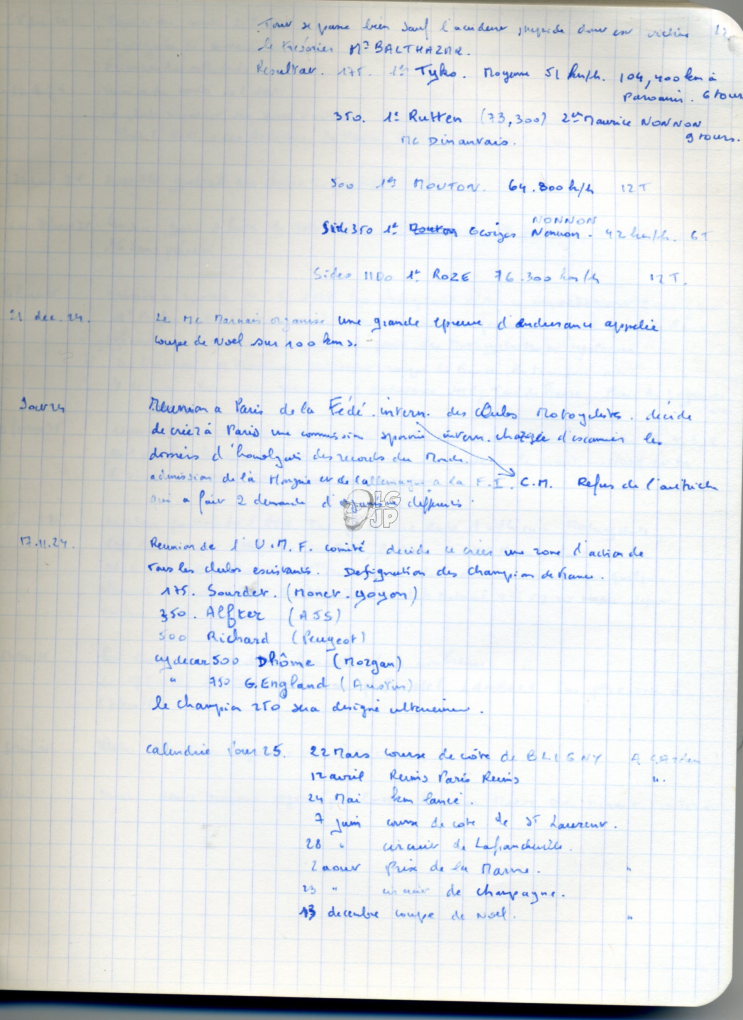 Tout se passe bien sauf l'accident stupide dont est victime 12,
le trésorier Mr BALTHAZAR.
Resultat. 175. 1er Tyko. Moyenne 51 km/h. 104,400 km à
parcourir. 6 tours
350. 1er Rutten (73,300) 2me Maurice NONNON
9 tours.
MC Dinantais.
500 1er MOUTON. 64.800 k/h 12 T
NONNON
Side 350 1er Mouton Georges Nonnon - 42 km/h. 6T
Sides 1100 1er ROZE 76.300 km/h 12 T.
21 dec. 24. Le MC Marnais organise une grande épreuve d'endurance appelée
coupe de Noel sur 100 kms.
Reunion a Paris de la Fédé. intern. des Clubs Motocyclistes. décide
de créer à Paris une commission sportive intern. chargée d'examiner les
dossiers d'homolgati des records du Monde.
admission de la Hongrie et de l'allemagne a la F.I.C.M. Refus de l'autriche
qui a fait 2 demande d' differents.
17.11.24. Reunion de l'U.M.F. comité decide de créer une zone d'action de
tous les clubs existants. Designation des champion de France.
175. Sourdot. (Monet. goyon)
350. Alfter (AJS)
500 Richard (Peugeot)
cyclecar 500 Dhôme (Morgan)
" 750 G. England (Austin)
le champion 250 sera designé ulterieurement.
calendrie pour 25. 22 Mars course de côte de BLIGNY
12 avril Reims Paris Reims ".
24 Mai km lancé.
7 juin course de cote de St Laurent.
28 " circuit de Lafrancheville.
2 aout Prix de la Marne. "
23 " circuit de champagne.
13 decembre coupe de Noel. "
LG
JP